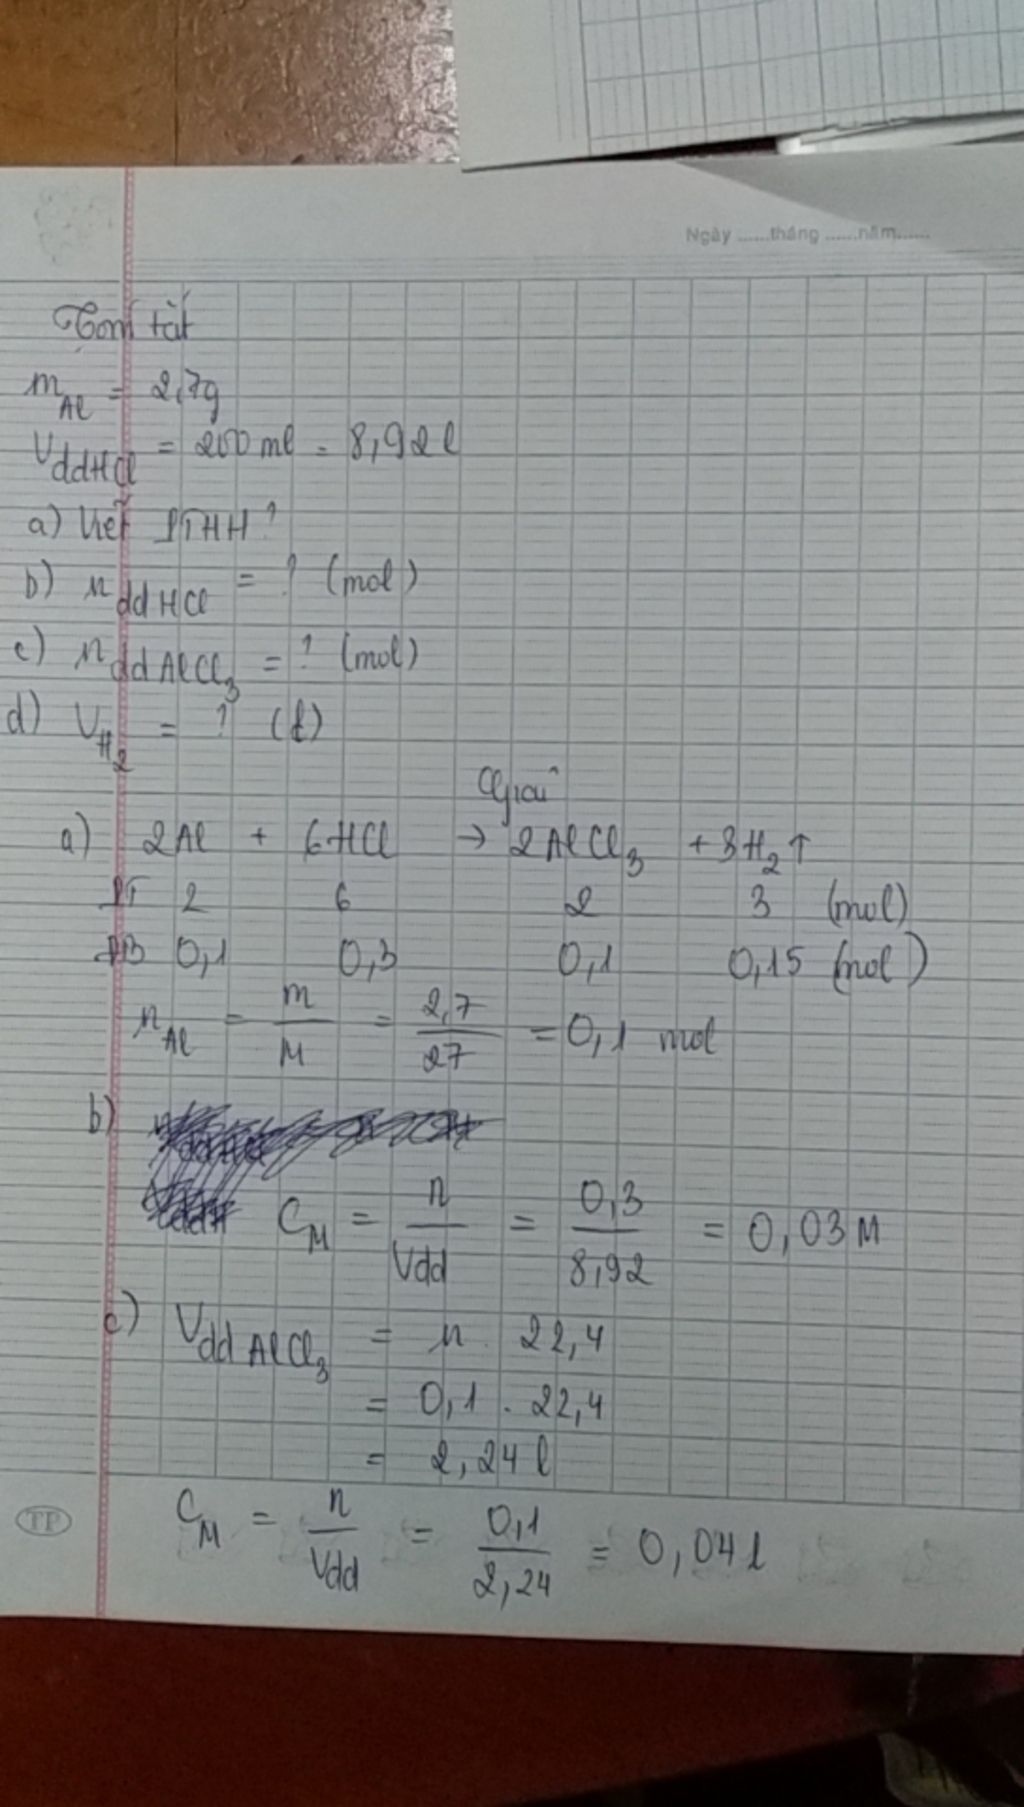 Ngày ......tháng ......năm......
Tóm tắt
m Al = 2,7g
V ddHCl = 200 ml = 8,92 l
a) Viết PTHH ?
b) n ddHCl = ? (mol)
c) n ddAlCl3 = ? (mol)
d) V H2 = ? (l)
Giải
a) 2Al + 6HCl → 2AlCl3 + 3H2 ↑
PT 2 6 2 3 (mol)
ĐB 0,1 0,3 0,1 0,15 (mol)
n Al = m/M = 2,7/27 = 0,1 mol
b)
CM = n/Vdd = 0,3/8,92 = 0,03 M
c) V ddAlCl3 = n . 22,4
= 0,1 . 22,4
= 2,24 l
CM = n/Vdd = 0,1/2,24 = 0,04 l
TP